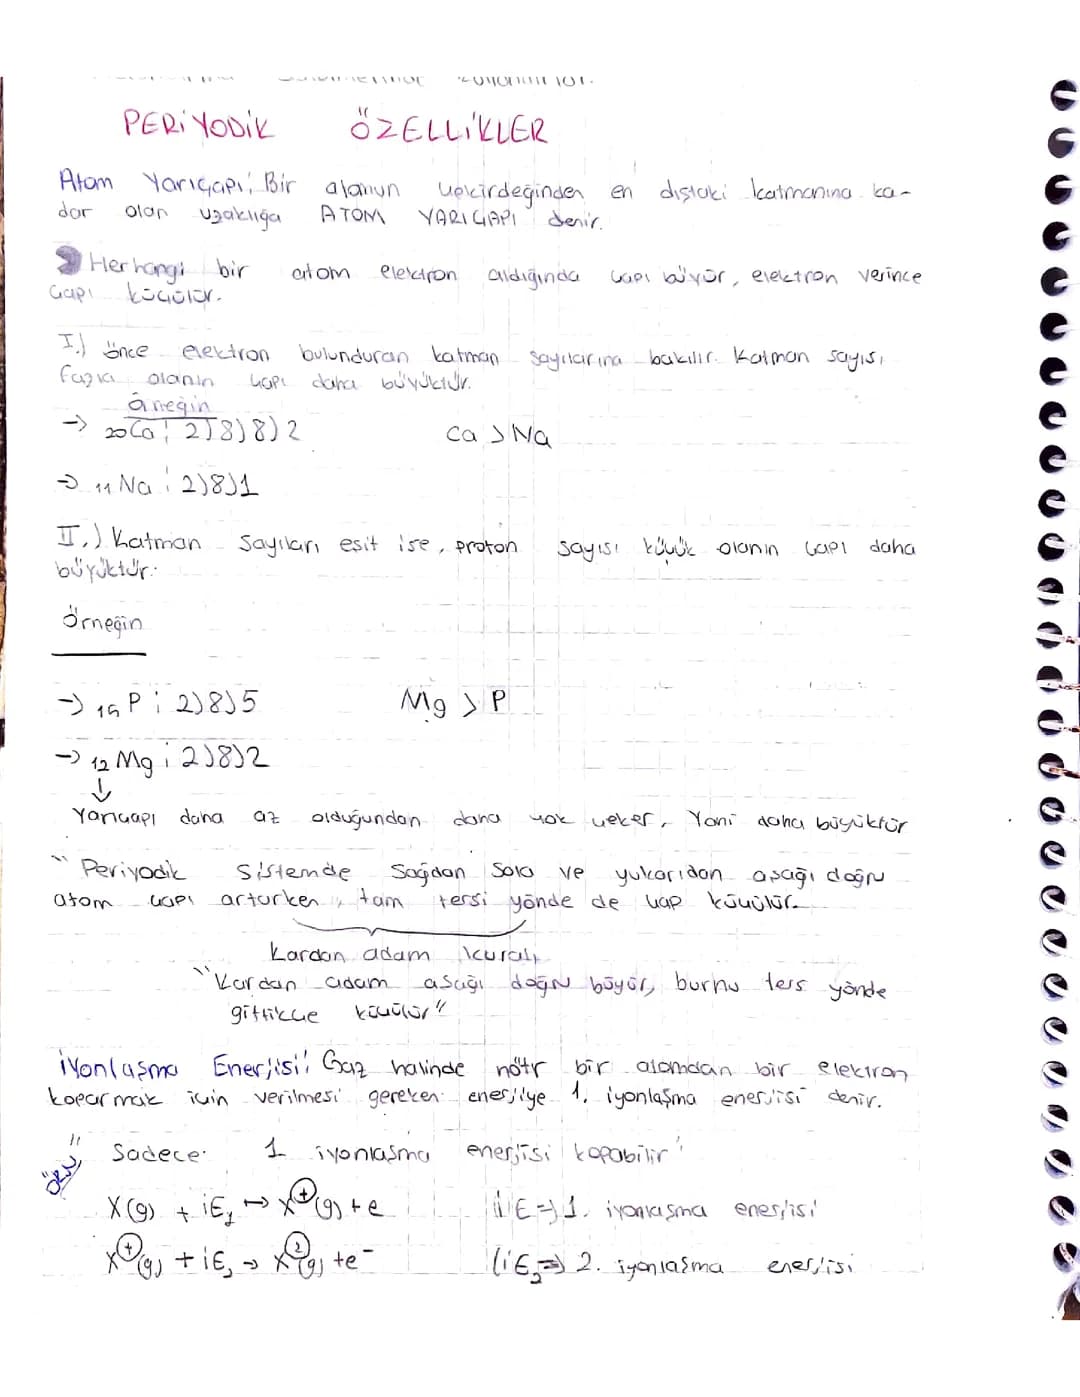 PERİYODİK ÖZELLİKLER
Atom Yarıçapı; Bir atomun çekirdeğinden en dıştaki katmanına ka-
dar olan uzaklığa ATOM YARIÇAPI denir.
Herhangi bir atom elektron aldığında çapı büyür, elektron verince
çapı küçülür.
I.) önce elektron bulunduran katman sayılarına bakılır. Katman sayısı
fazla olanın çapı daha büyüktür.
örneğin
→ 20Ca: 2)8)8)2 Ca > Na
→ 11Na: 2)8)1
II.) Katman sayıları eşit ise, proton sayısı küçük olanın çapı daha
büyüktür.
Örneğin
→ 15P: 2)8)5 Mg > P
→ 12Mg: 2)8)2
↓
Yarıçapı daha az olduğundan daha çok çeker, Yani daha büyüktür
"Periyodik sistemde sağdan sola ve yukarıdan aşağı doğru
atom çapı artarken, tam tersi yönde de çap küçülür.
Kardan adam kuralı
"Kardan adam aşağı doğru büyür, burnu ters yönde
gittikçe küçülür"
İyonlaşma Enerjisi: Gaz halinde nötr bir atomdan bir elektron
koparmak için verilmesi gereken enerjiye 1. iyonlaşma enerjisi denir.
Sadece 1 iyonlaşma enerjisi kopabilir
X(g) + iE1 → X⁺(g) + e (iE⇒ 1. iyonlaşma enerjisi
X⁺(g) + iE2 → X²(g) + e⁻ (iE2⇒ 2. iyonlaşma enerjisi